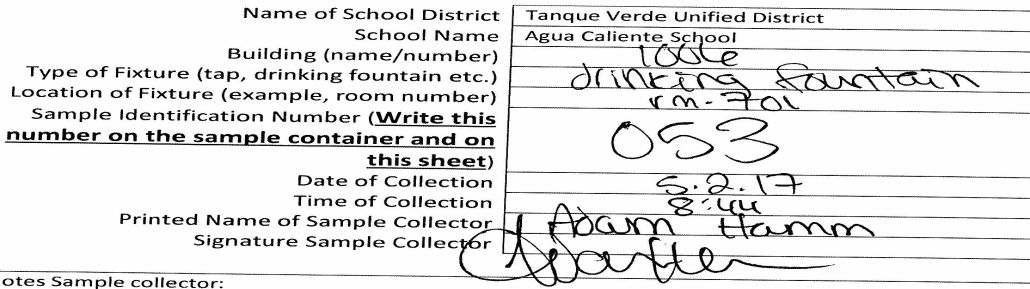 Name of School District Tanque Verde Unified District
School Name Agua Caliente School
Building (name/number) 1006
Type of Fixture (tap, drinking fountain etc.) drinking fountain
Location of Fixture (example, room number) rm-701
Sample Identification Number (Write this
number on the sample container and on
this sheet) 053
Date of Collection 5.2.17
Time of Collection 8:44
Printed Name of Sample Collector Adam Hamm
Signature Sample Collector
otes Sample collector: